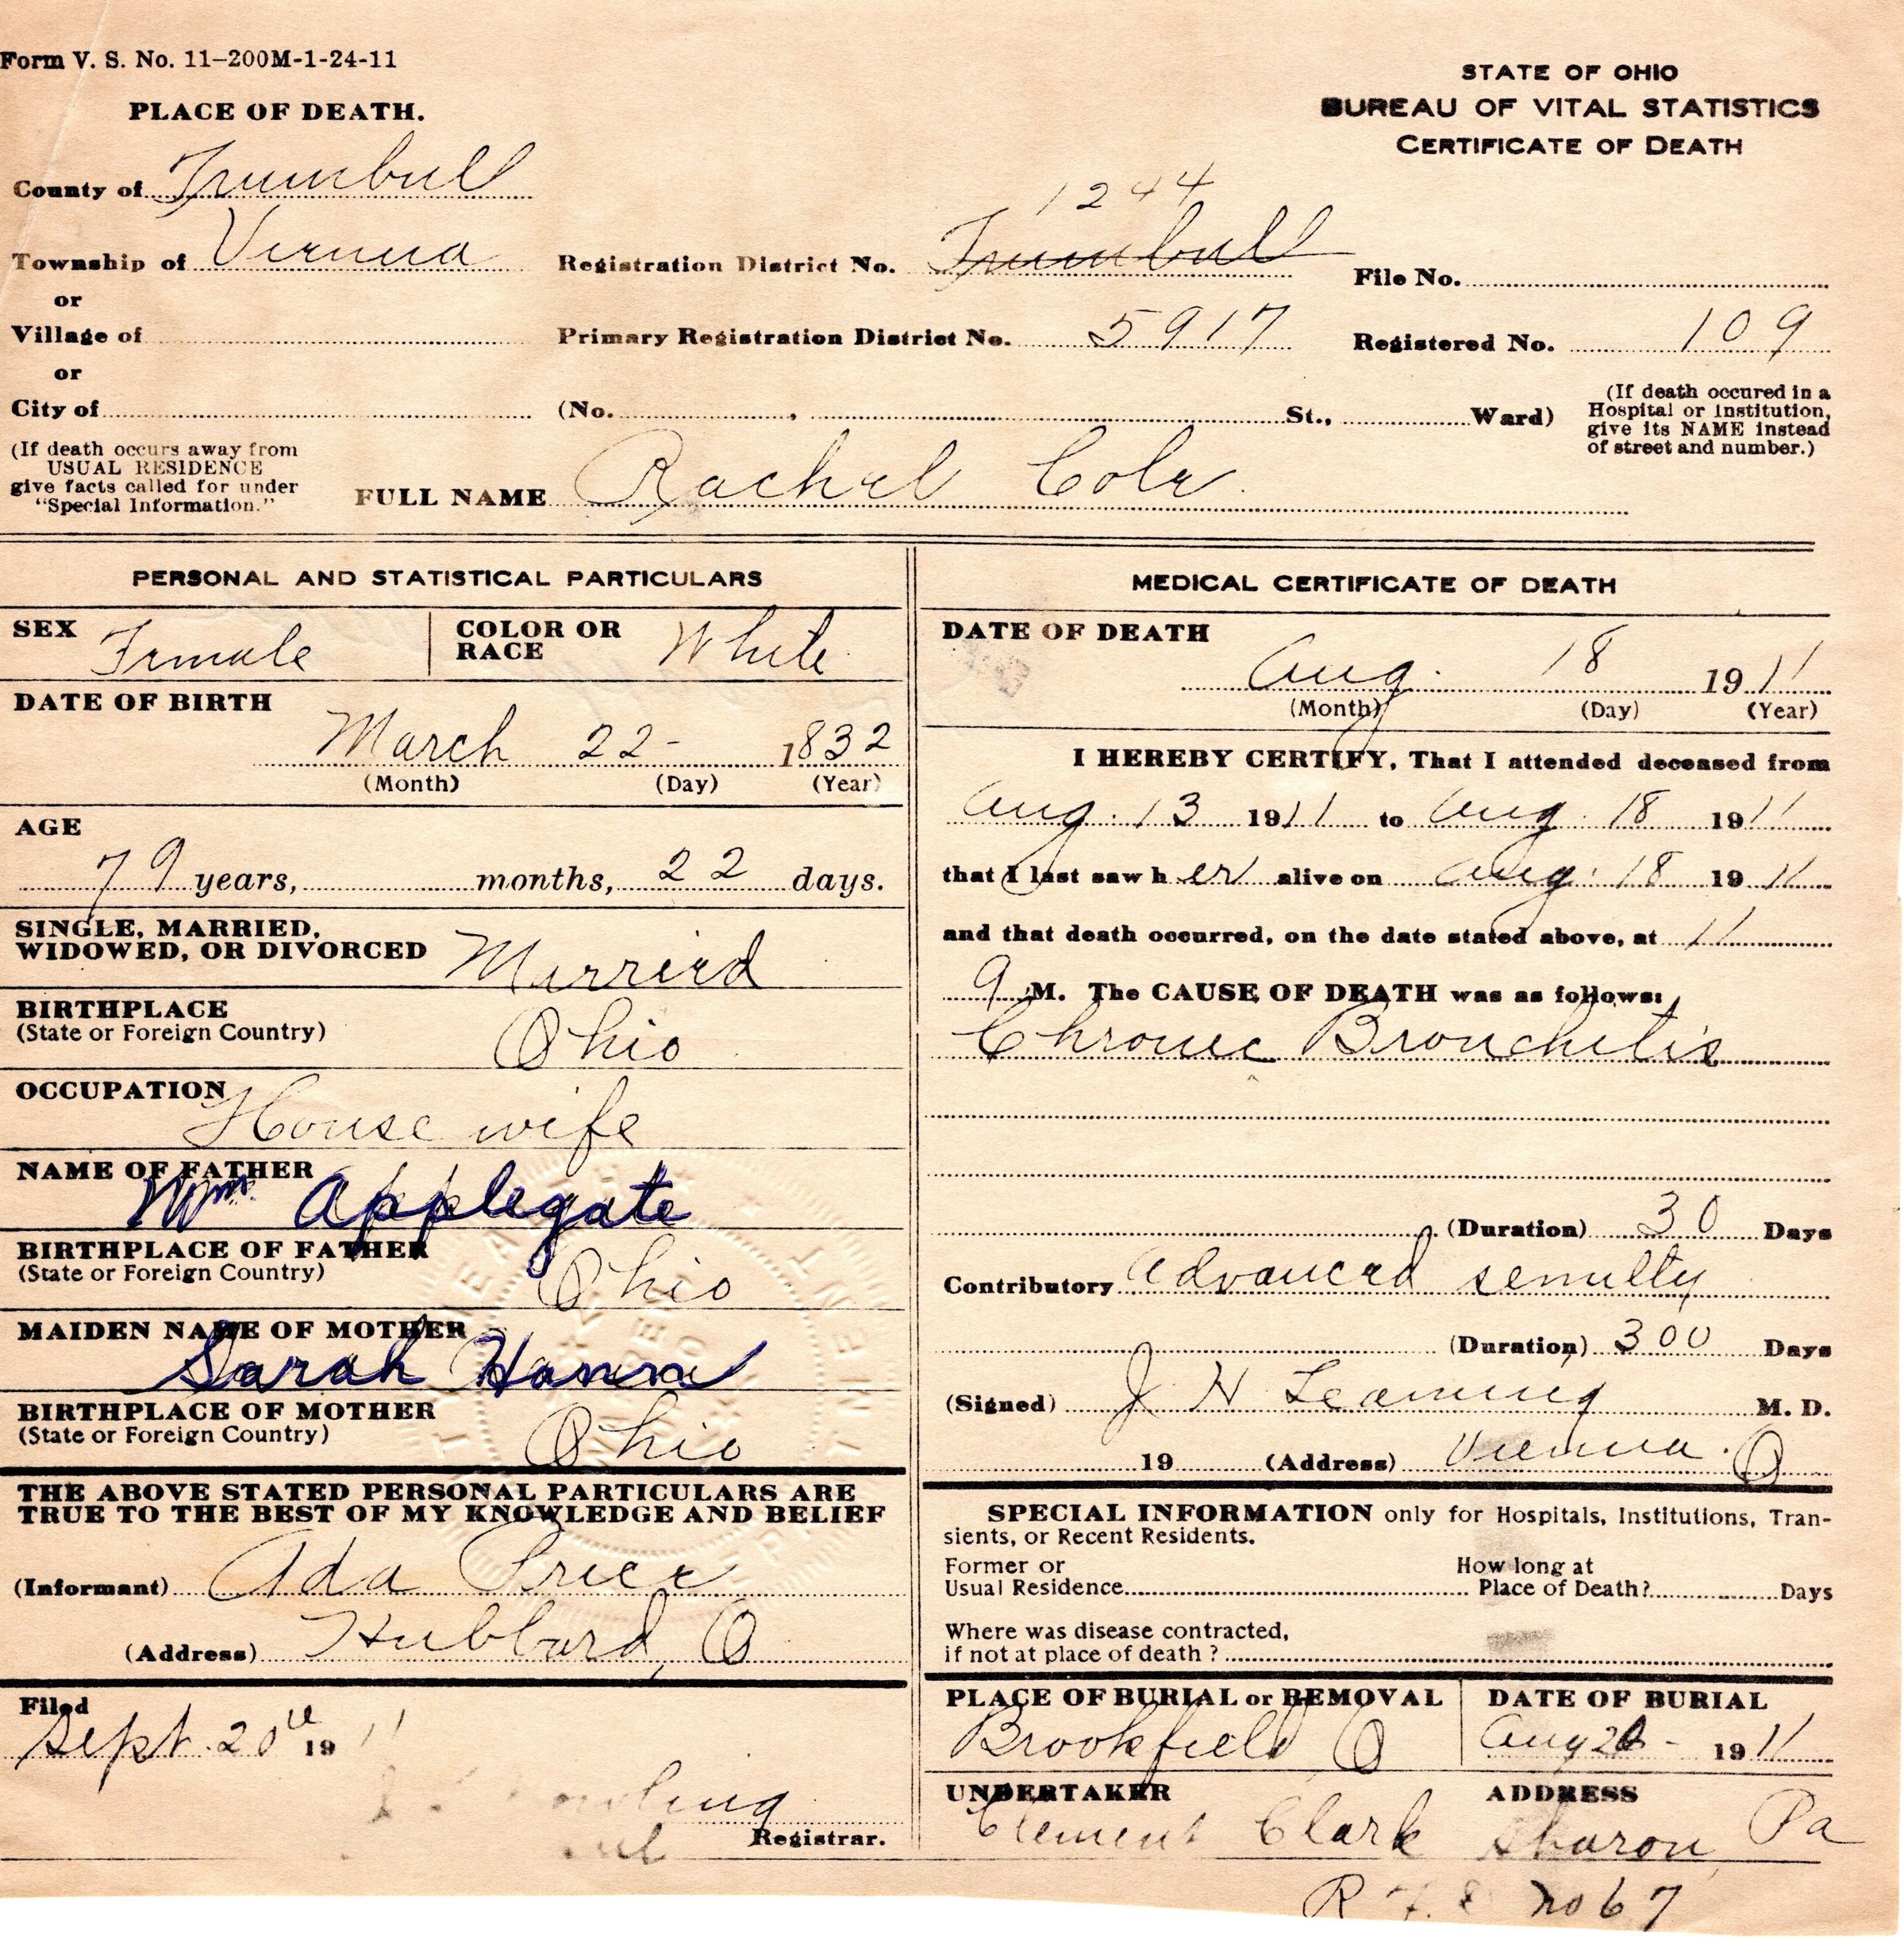 Form V. S. No. 11-200M-1-24-11
STATE OF OHIO
BUREAU OF VITAL STATISTICS
CERTIFICATE OF DEATH
PLACE OF DEATH.
County of Trumbull
1244
Township of Vienna
Registration District No. Trumbull
File No.
or
Village of
Primary Registration District No. 5917
Registered No. 109
or
City of
(No. , St., Ward)
(If death occured in a
Hospital or Institution,
give its NAME instead
of street and number.)
(If death occurs away from
USUAL RESIDENCE
give facts called for under
"Special Information."
FULL NAME Rachel Cole
PERSONAL AND STATISTICAL PARTICULARS
SEX Female
COLOR OR
RACE White
DATE OF BIRTH
March 22- 1832
(Month) (Day) (Year)
AGE
79 years, months, 22 days.
SINGLE, MARRIED,
WIDOWED, OR DIVORCED Married
BIRTHPLACE
(State or Foreign Country) Ohio
OCCUPATION
House wife
NAME OF FATHER
Wm Applegate
BIRTHPLACE OF FATHER
(State or Foreign Country) Ohio
MAIDEN NAME OF MOTHER
Sarah Hanna
BIRTHPLACE OF MOTHER
(State or Foreign Country) Ohio
THE ABOVE STATED PERSONAL PARTICULARS ARE
TRUE TO THE BEST OF MY KNOWLEDGE AND BELIEF
(Informant) Ada Price
(Address) Hubbard, O
Filed
Sept. 20th 1911
Registrar.
MEDICAL CERTIFICATE OF DEATH
DATE OF DEATH
Aug. 18 1911
(Month) (Day) (Year)
I HEREBY CERTIFY, That I attended deceased from
Aug. 13 1911 to Aug. 18 1911
that I last saw her alive on Aug. 18 1911
and that death occurred, on the date stated above, at 11
9 M. The CAUSE OF DEATH was as follows:
Chronic Bronchitis
(Duration) 30 Days
Contributory Advanced senility
(Duration) 300 Days
(Signed) J H Leaming M. D.
19 (Address) Vienna. O
SPECIAL INFORMATION only for Hospitals, Institutions, Tran-
sients, or Recent Residents.
Former or
Usual Residence
How long at
Place of Death? Days
Where was disease contracted,
if not at place of death ?
PLACE OF BURIAL or REMOVAL
Brookfield O
DATE OF BURIAL
Aug 20- 1911
UNDERTAKER
Clement Clark
ADDRESS
Sharon, Pa
No 67